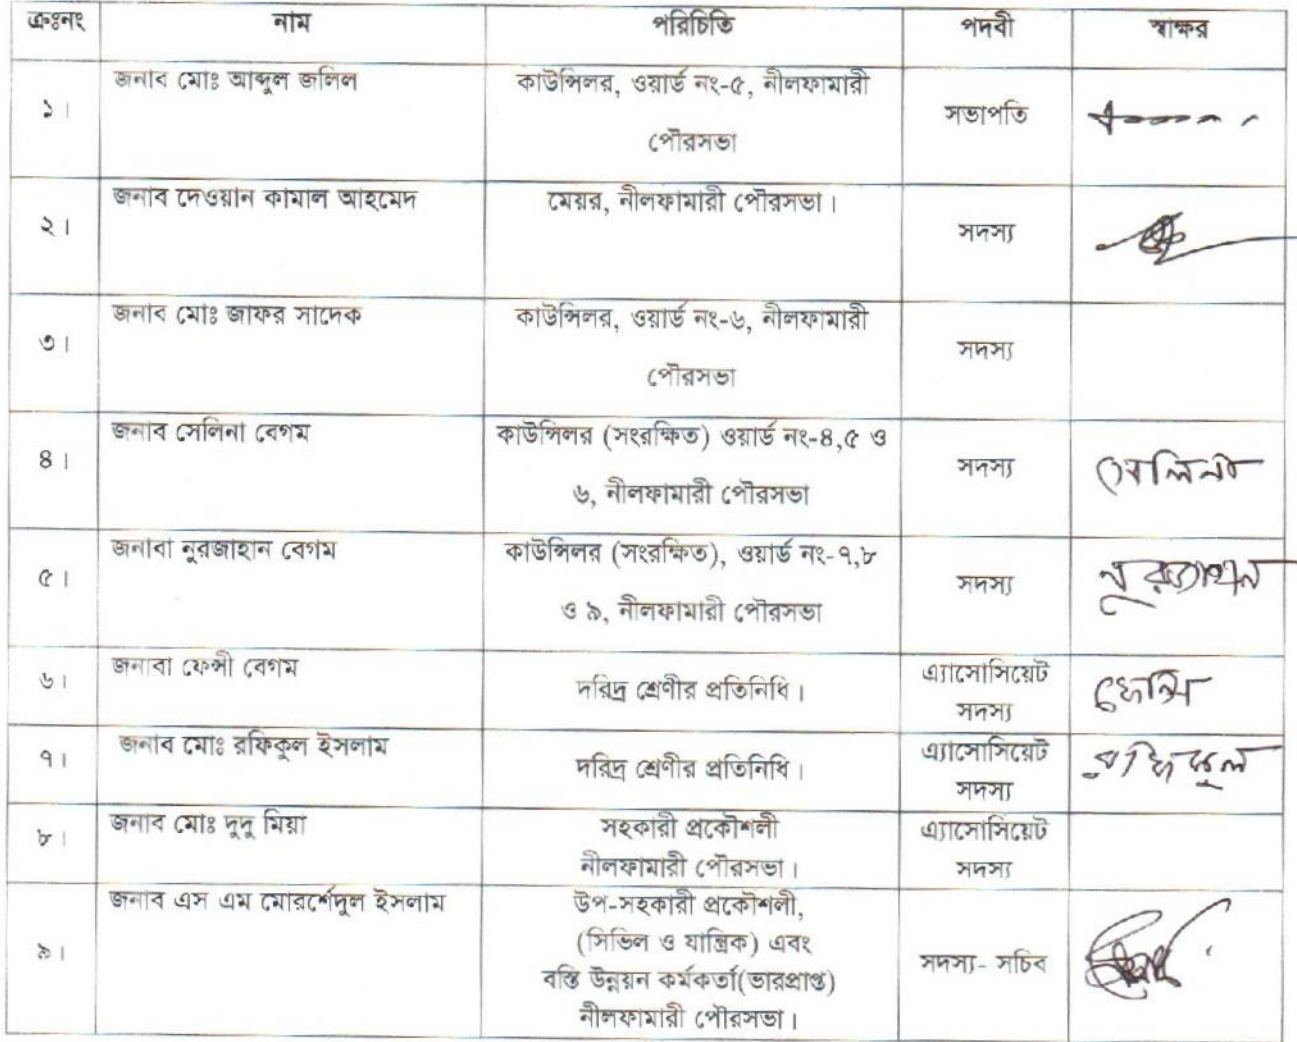 ক্রঃনং নাম পরিচিতি পদবী স্বাক্ষর
১। জনাব মোঃ আব্দুল জলিল কাউন্সিলর, ওয়ার্ড নং-৫, নীলফামারী
পৌরসভা সভাপতি
২। জনাব দেওয়ান কামাল আহমেদ মেয়র, নীলফামারী পৌরসভা। সদস্য
৩। জনাব মোঃ জাফর সাদেক কাউন্সিলর, ওয়ার্ড নং-৬, নীলফামারী
পৌরসভা সদস্য
৪। জনাব সেলিনা বেগম কাউন্সিলর (সংরক্ষিত) ওয়ার্ড নং-৪,৫ ও
৬, নীলফামারী পৌরসভা সদস্য সেলিনা
৫। জনাবা নুরজাহান বেগম কাউন্সিলর (সংরক্ষিত), ওয়ার্ড নং-৭,৮
ও ৯, নীলফামারী পৌরসভা সদস্য নুরজাহান
৬। জনাবা ফেন্সী বেগম দরিদ্র শ্রেণীর প্রতিনিধি। এ্যাসোসিয়েট
সদস্য ফেন্সি
৭। জনাব মোঃ রফিকুল ইসলাম দরিদ্র শ্রেণীর প্রতিনিধি। এ্যাসোসিয়েট
সদস্য রফিকুল
৮। জনাব মোঃ দুদু মিয়া সহকারী প্রকৌশলী এ্যাসোসিয়েট
নীলফামারী পৌরসভা। সদস্য
৯। জনাব এস এম মোরর্শেদুল ইসলাম উপ-সহকারী প্রকৌশলী,
(সিভিল ও যান্ত্রিক) এবং
বস্তি উন্নয়ন কর্মকর্তা(ভারপ্রাপ্ত) সদস্য- সচিব
নীলফামারী পৌরসভা।